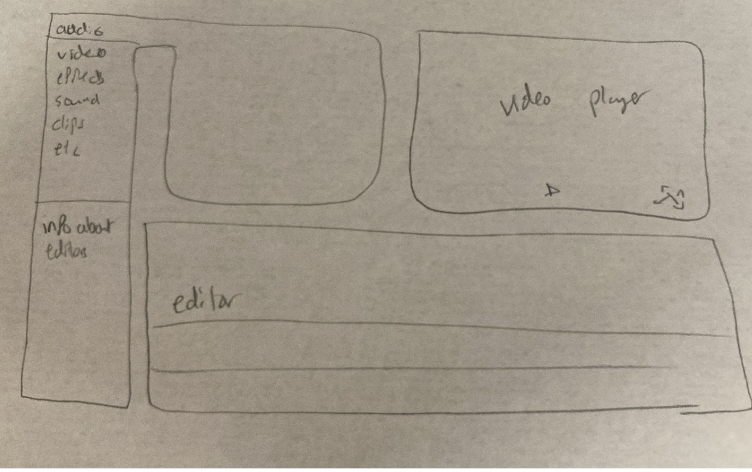 audio
video
effects
sound
clips
etc
info about
editor
video player
editor